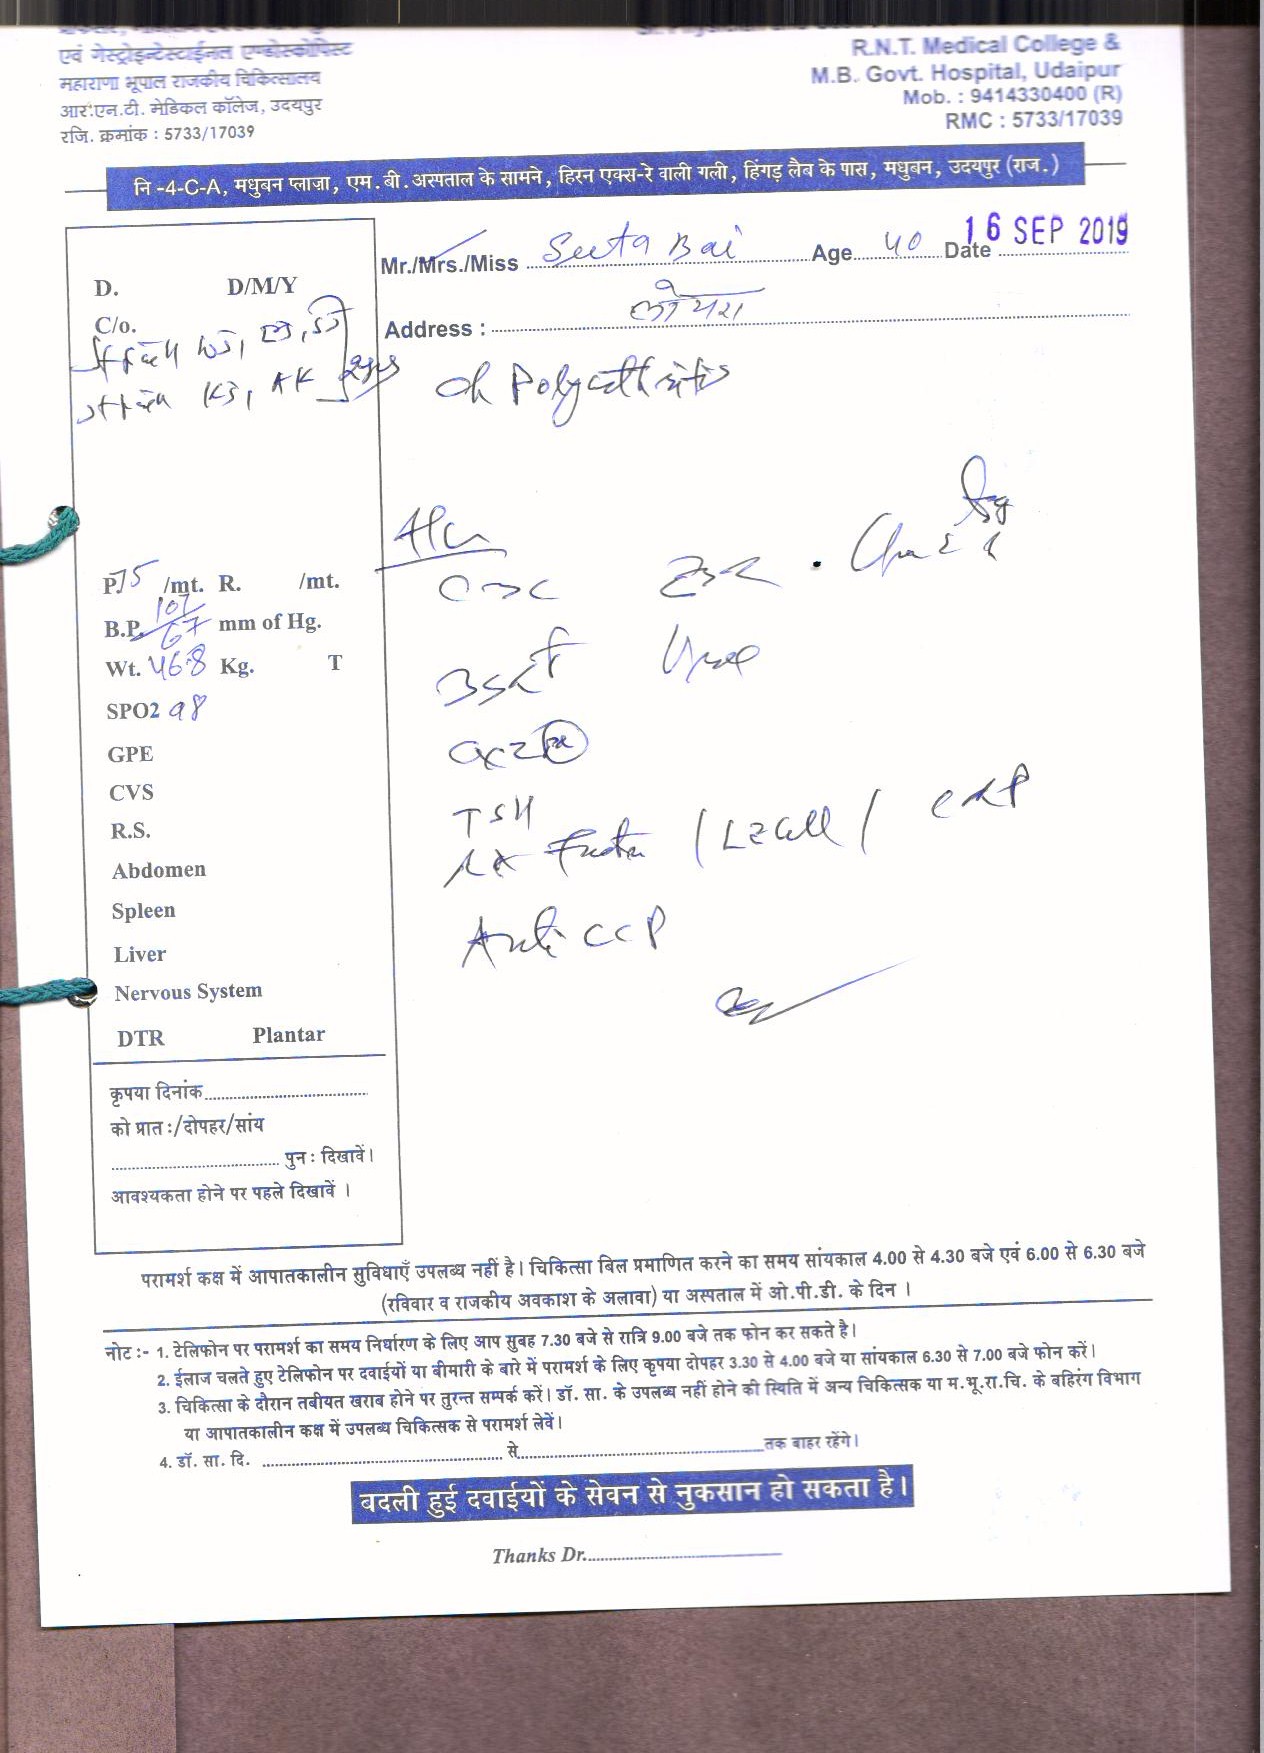 एवं गेस्ट्रोइन्टेस्टाईनल एण्डोस्कोपिस्ट
महाराणा भूपाल राजकीय चिकित्सालय
आर.एन.टी. मेडिकल कॉलेज, उदयपुर
रजि. क्रमांक : 5733/17039
R.N.T. Medical College &
M.B. Govt. Hospital, Udaipur
Mob. : 9414330400 (R)
RMC : 5733/17039
नि -4-C-A, मधुबन प्लाजा, एम.बी. अस्पताल के सामने, हिरन एक्स-रे वाली गली, हिंगड़ लैब के पास, मधुबन, उदयपुर (राज.)
Mr./Mrs./Miss Seeta Bai Age 40 Date 16 SEP 2019
Address :
D. D/M/Y
C/o.
Polyarthritis
P. 75 /mt. R. /mt.
B.P. 107/67 mm of Hg.
Wt. 46.8 Kg. T
SPO2 98
GPE
CVS
R.S.
Abdomen
Spleen
Liver
Nervous System
DTR Plantar
CBC ESR
TSH
RA Factor / / CRP
Anti CCP
कृपया दिनांक
को प्रात:/दोपहर/सांय
पुन: दिखावें।
आवश्यकता होने पर पहले दिखावें ।
परामर्श कक्ष में आपातकालीन सुविधाएँ उपलब्ध नहीं है। चिकित्सा बिल प्रमाणित करने का समय सांयकाल 4.00 से 4.30 बजे एवं 6.00 से 6.30 बजे
(रविवार व राजकीय अवकाश के अलावा) या अस्पताल में ओ.पी.डी. के दिन ।
नोट :- 1. टेलिफोन पर परामर्श का समय निर्धारण के लिए आप सुबह 7.30 बजे से रात्रि 9.00 बजे तक फोन कर सकते है।
2. ईलाज चलते हुए टेलिफोन पर दवाईयों या बीमारी के बारे में परामर्श के लिए कृपया दोपहर 3.30 से 4.00 बजे या सांयकाल 6.30 से 7.00 बजे फोन करें।
3. चिकित्सा के दौरान तबीयत खराब होने पर तुरन्त सम्पर्क करें। डॉ. सा. के उपलब्ध नहीं होने की स्थिति में अन्य चिकित्सक या म.भू.रा.चि. के बहिरंग विभाग
या आपातकालीन कक्ष में उपलब्ध चिकित्सक से परामर्श लेवें।
4. डॉ. सा. दि. से तक बाहर रहेंगे।
बदली हुई दवाईयों के सेवन से नुकसान हो सकता है।
Thanks Dr.